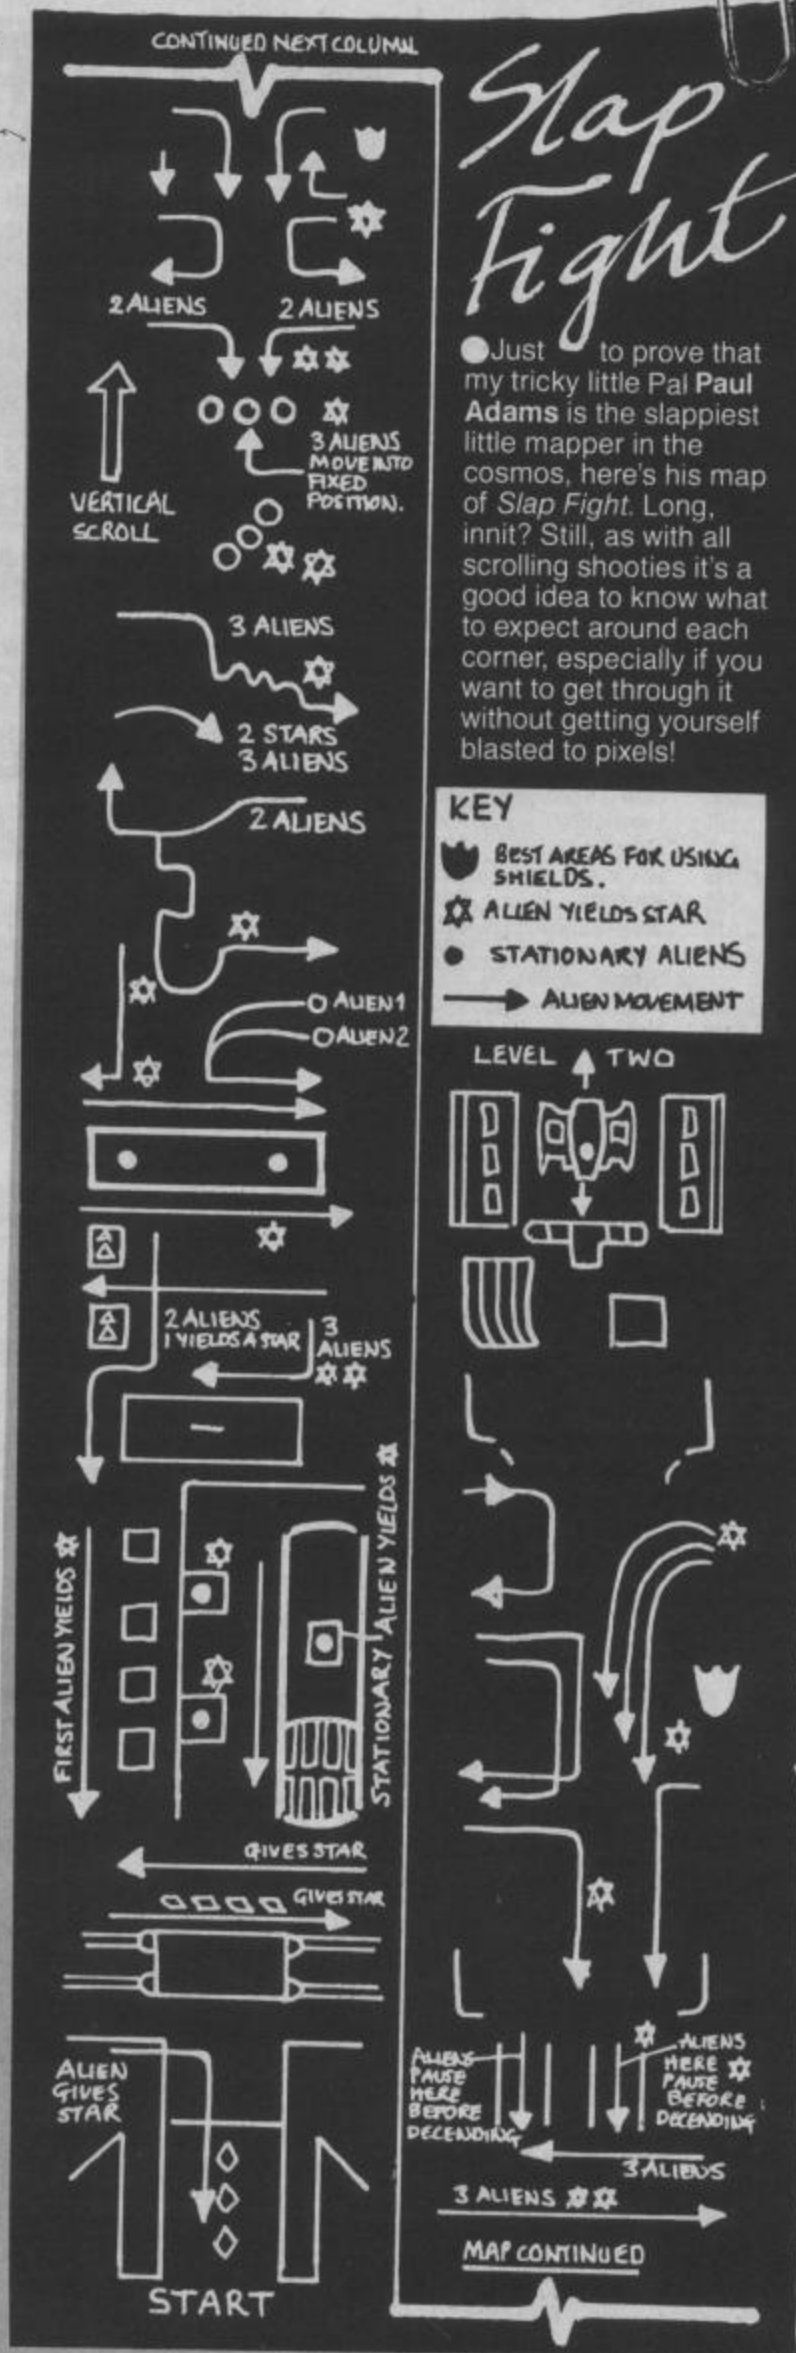 CONTINUED NEXT COLUMN
2 ALIENS
2 ALIENS
3 ALIENS
MOVE INTO
FIXED
POSITION.
VERTICAL
SCROLL
3 ALIENS
2 STARS
3 ALIENS
2 ALIENS
ALIEN 1
ALIEN 2
2 ALIENS
1 YIELDS A STAR
3
ALIENS
FIRST ALIEN YIELDS
STATIONARY ALIEN YIELDS
GIVES STAR
GIVES STAR
ALIEN
GIVES
STAR
START
Slap
Fight
Just to prove that
my tricky little Pal Paul
Adams is the slappiest
little mapper in the
cosmos, here's his map
of Slap Fight. Long,
innit? Still, as with all
scrolling shooties it's a
good idea to know what
to expect around each
corner, especially if you
want to get through it
without getting yourself
blasted to pixels!
KEY
BEST AREAS FOR USING
SHIELDS.
ALIEN YIELDS STAR
STATIONARY ALIENS
ALIEN MOVEMENT
LEVEL TWO
ALIENS
PAUSE
HERE
BEFORE
DECENDING
ALIENS
HERE
PAUSE
BEFORE
DECENDING
3 ALIENS
3 ALIENS
MAP CONTINUED